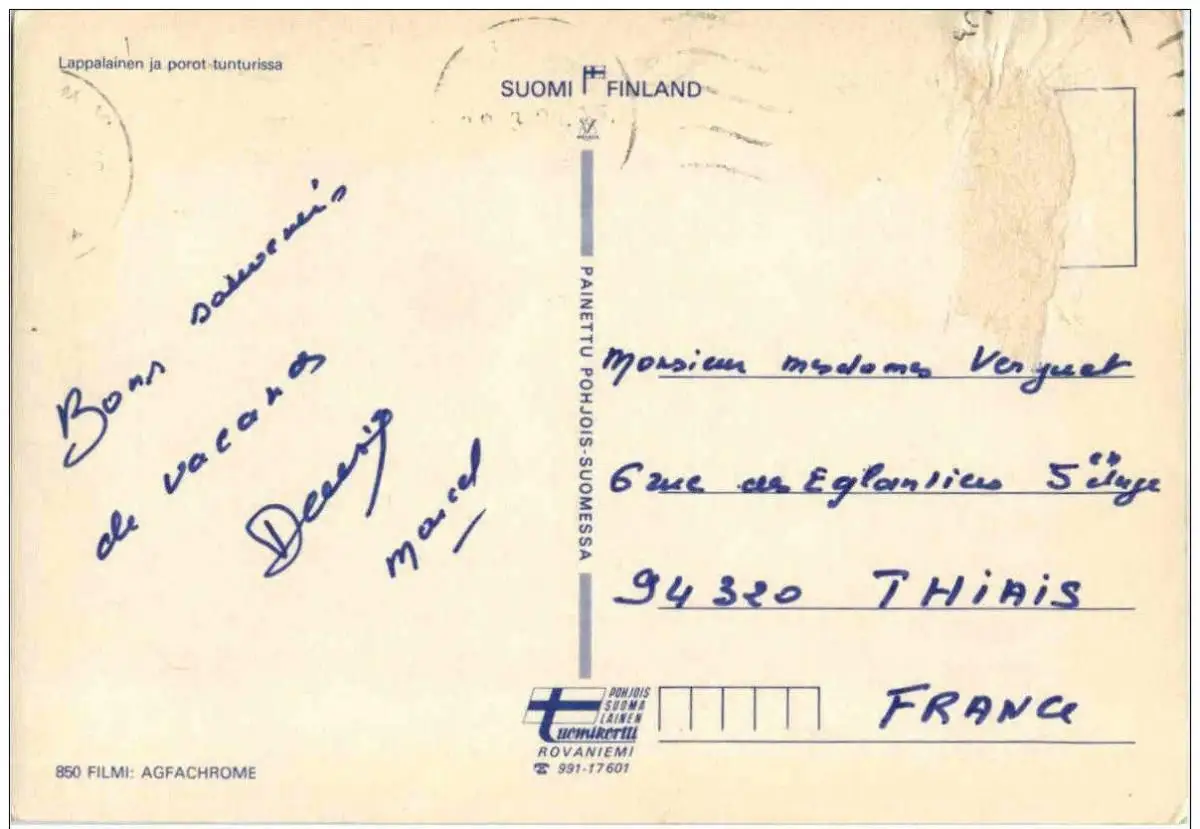 Lappalainen ja porot tunturissa
SUOMI FINLAND
PAINETTU POHJOIS-SUOMESSA
Bons souvenirs
de vacances
Marcel
Monsieur mesdames Verguet
6 rue des Eglantiers 5 étage
94320 THIAIS
FRANCE
POHJOIS
SUOMA
LAINEN
Tuomikortti
ROVANIEMI
☎ 991-17601
850 FILMI: AGFACHROME